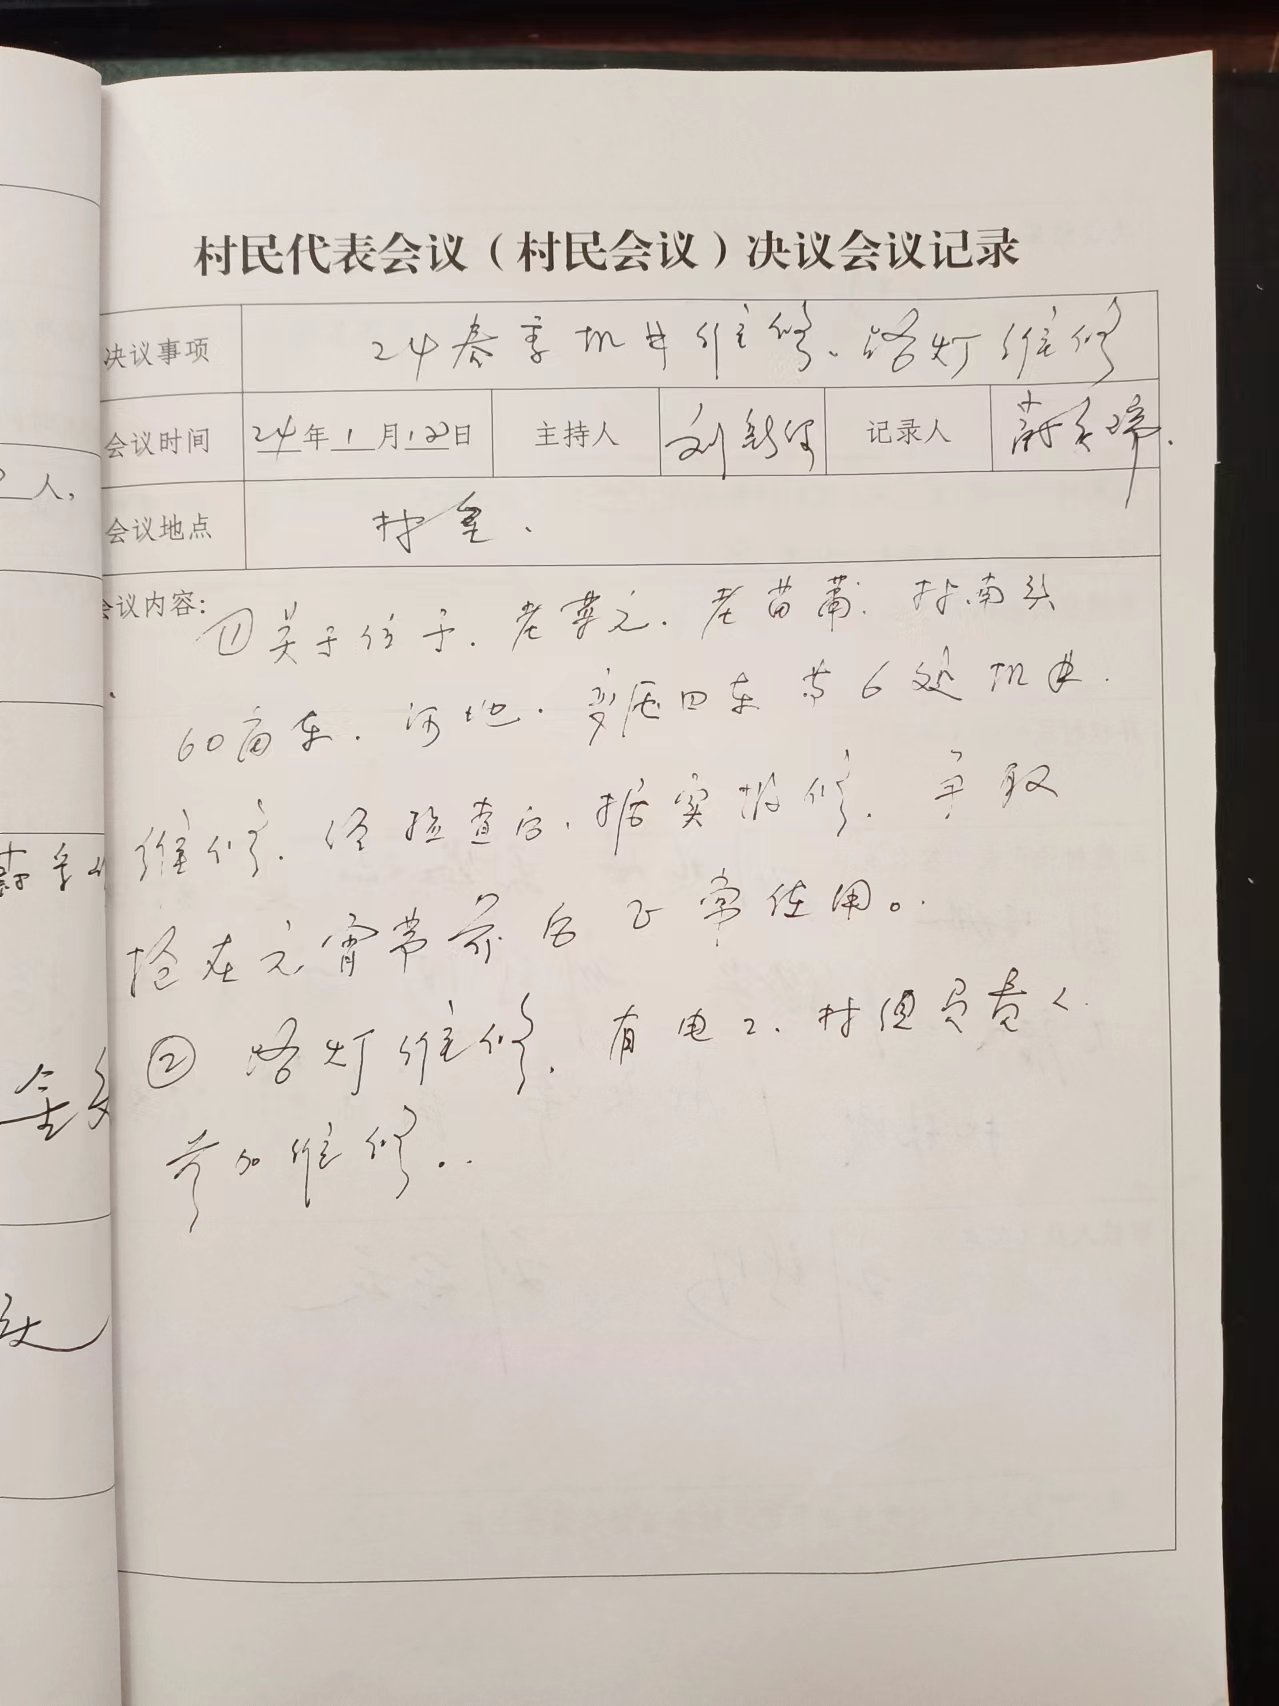 村民代表会议（村民会议）决议会议记录
决议事项 24春季机井维修、路灯维修
会议时间 24年1月12日 主持人 刘 记录人
会议地点 村室.
会议内容:
①关于 老 老苗 村南头
60亩东. 河地. 变压 东 等6处机井.
维修. 经检查后. 据实报修. 争取
抢在元宵节前后正常使用。
② 路灯维修. 有电工. 村 负责人.
参加维修..
人,